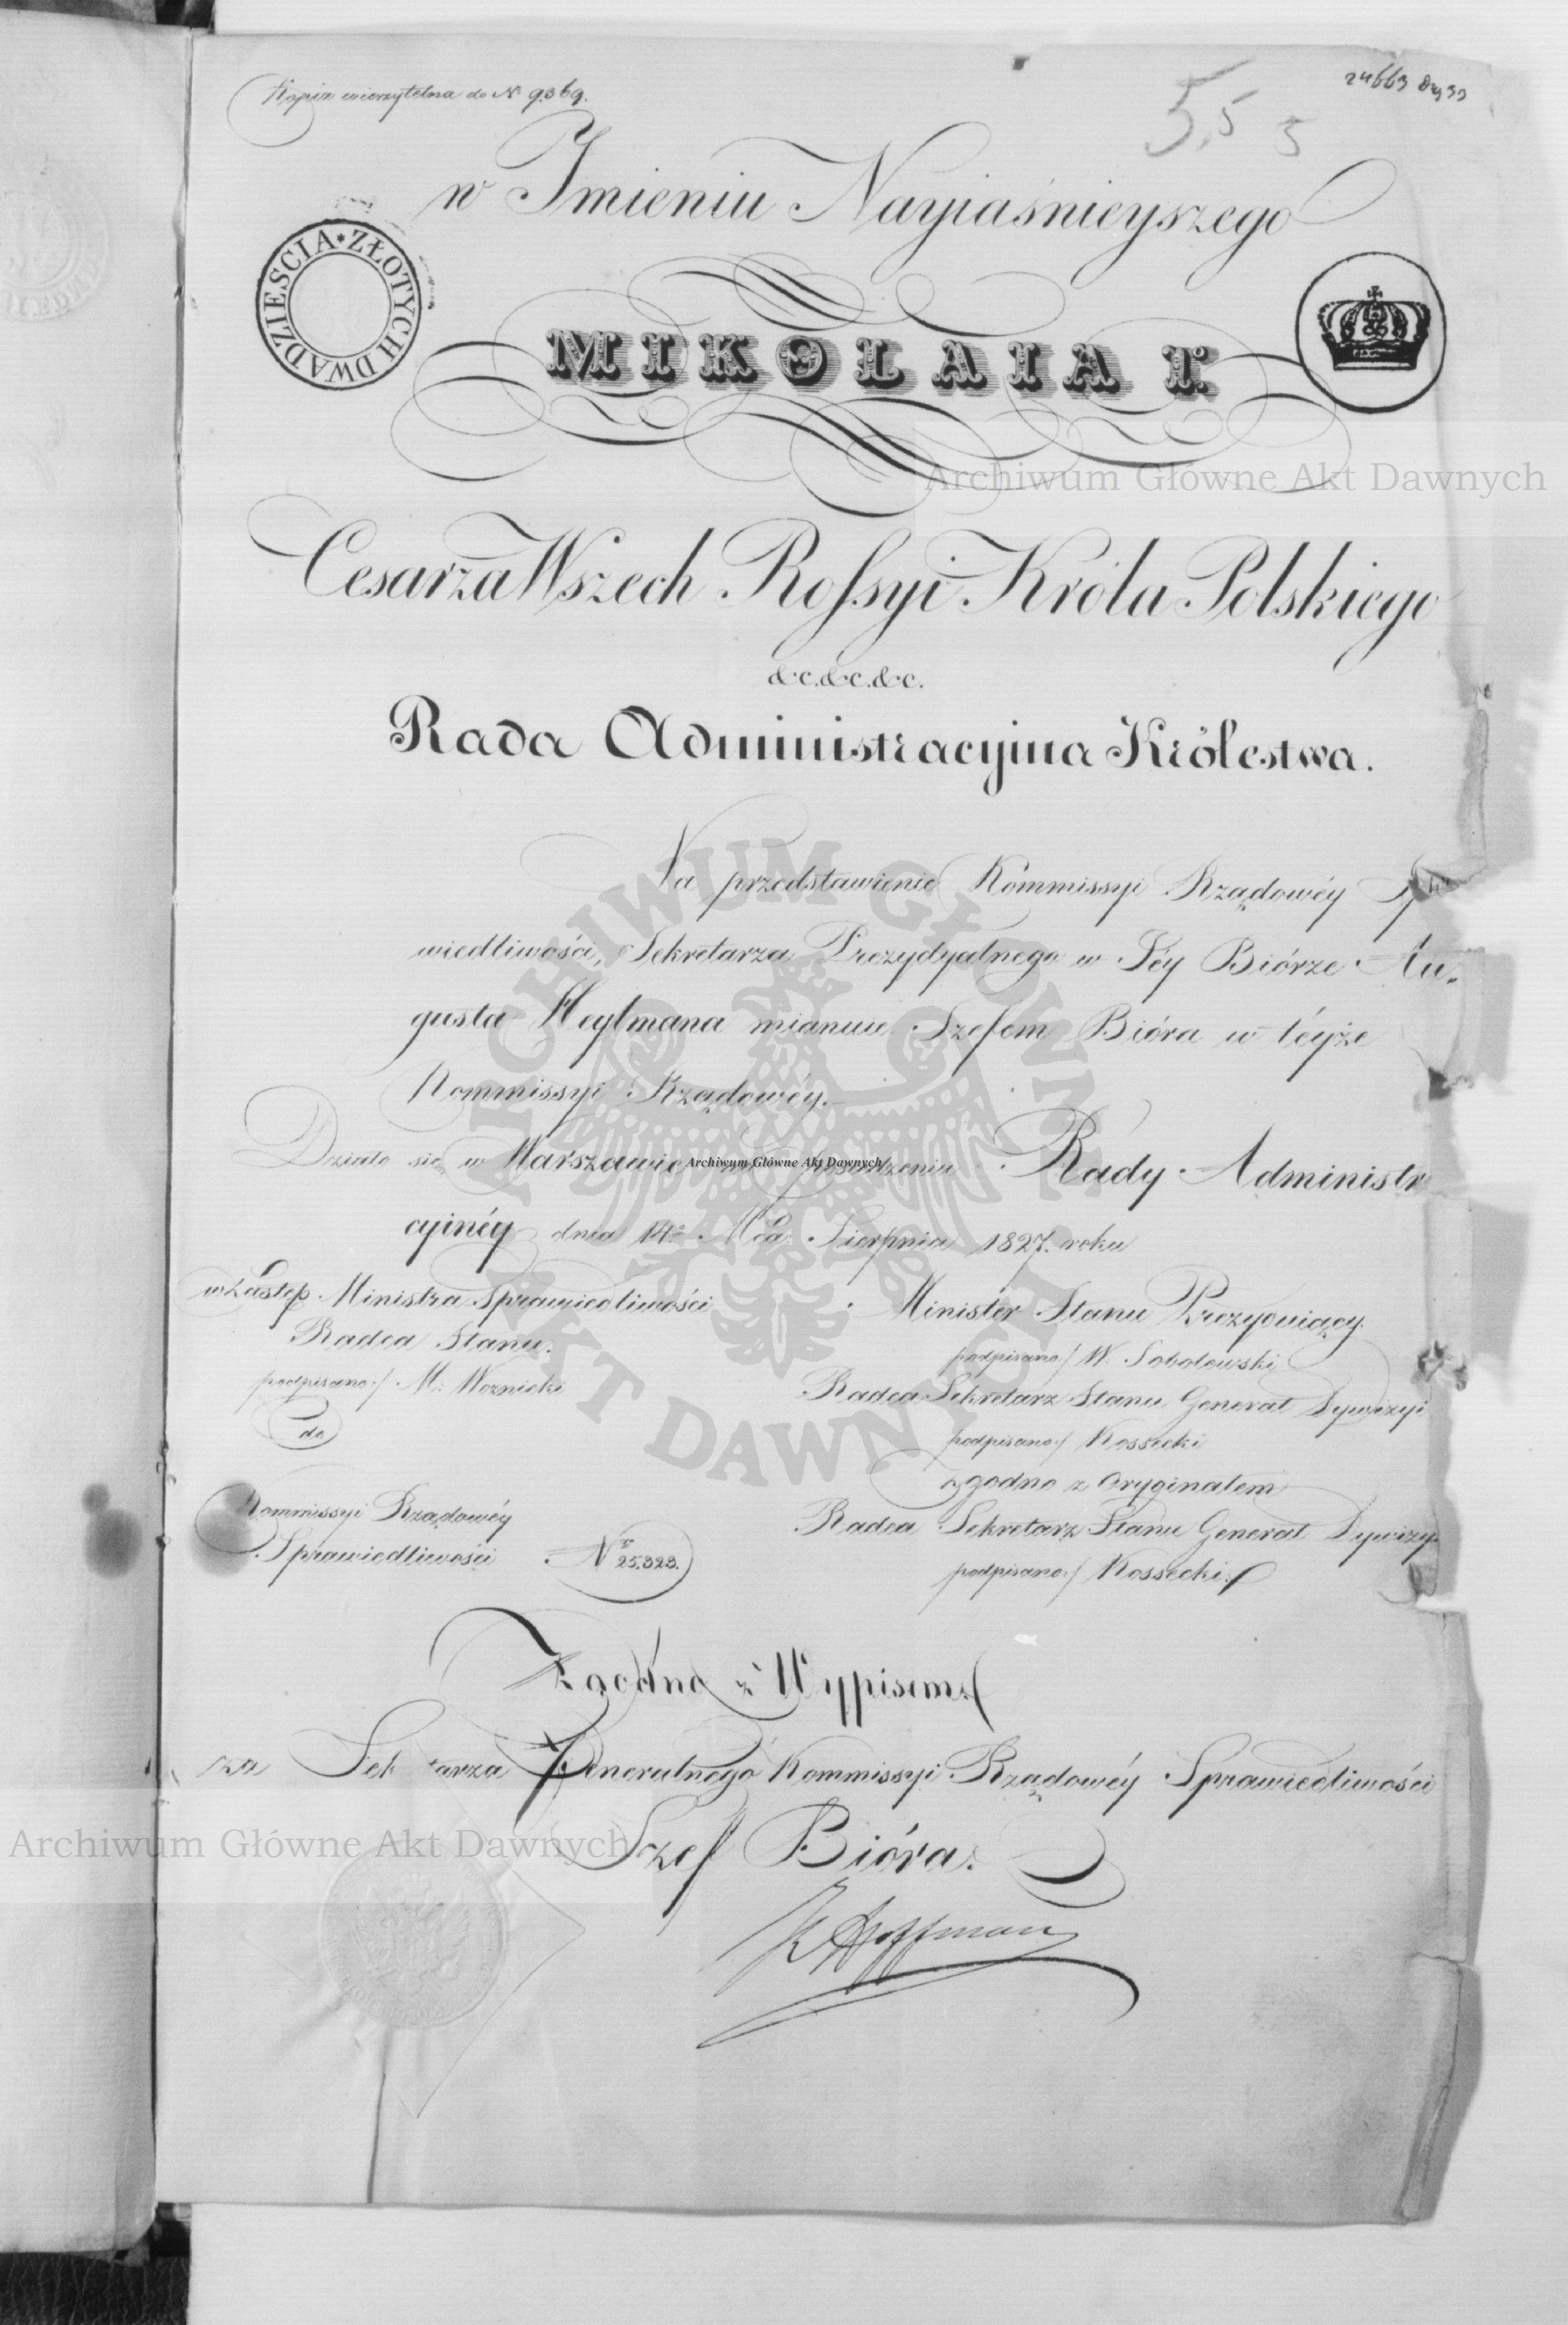 Kopia wierzytelna do N. 9369.
24663
5
5 5
w Imieniu Nayiaśnieyszego
DWADZIEŚCIA * ZŁOTYCH
MIKOŁAIA I.
Archiwum Główne Akt Dawnych
Cesarza Wszech Rossyi Króla Polskiego
&c.&c.&c.
Rada Administracyina Królestwa.
Na przedstawienie Kommissyi Rządowéy Spra
wiedliwości, Sekretarza Prezydyalnego w Jéy Biórze Au-
gusta Heylmana mianuie Szefem Bióra w téyże
Kommissyi Rządowéy.
Działo się w Warszawie na posiedzeniu Rady Administr
Archiwum Główne Akt Dawnych
cyinéy dnia 14º Mca Sierpnia 1827. roku
w Zastęp. Ministra Sprawiedliwości
Radca Stanu.
podpisano:/ M: Woznicki
do
Kommissyi Rządowéy
Sprawiedliwości
Nr 25.323.
Minister Stanu Prezyduiący
podpisano/ W. Sobolewski
Radca Sekretarz Stanu Generał Dywizyi
podpisano:/ Kossecki
Zgodno z Oryginałem
Radca Sekretarz Stanu Generał Dywizyi
podpisano:/ Kossecki
ARCHIWUM GŁÓWNE AKT DAWNYCH
Zgodno z Wypisem:
za Sek tarza Generalnego Kommissyi Rządowéy Sprawiedliwości
Archiwum Główne Akt Dawnych
Szef Bióra:
K Hoffman